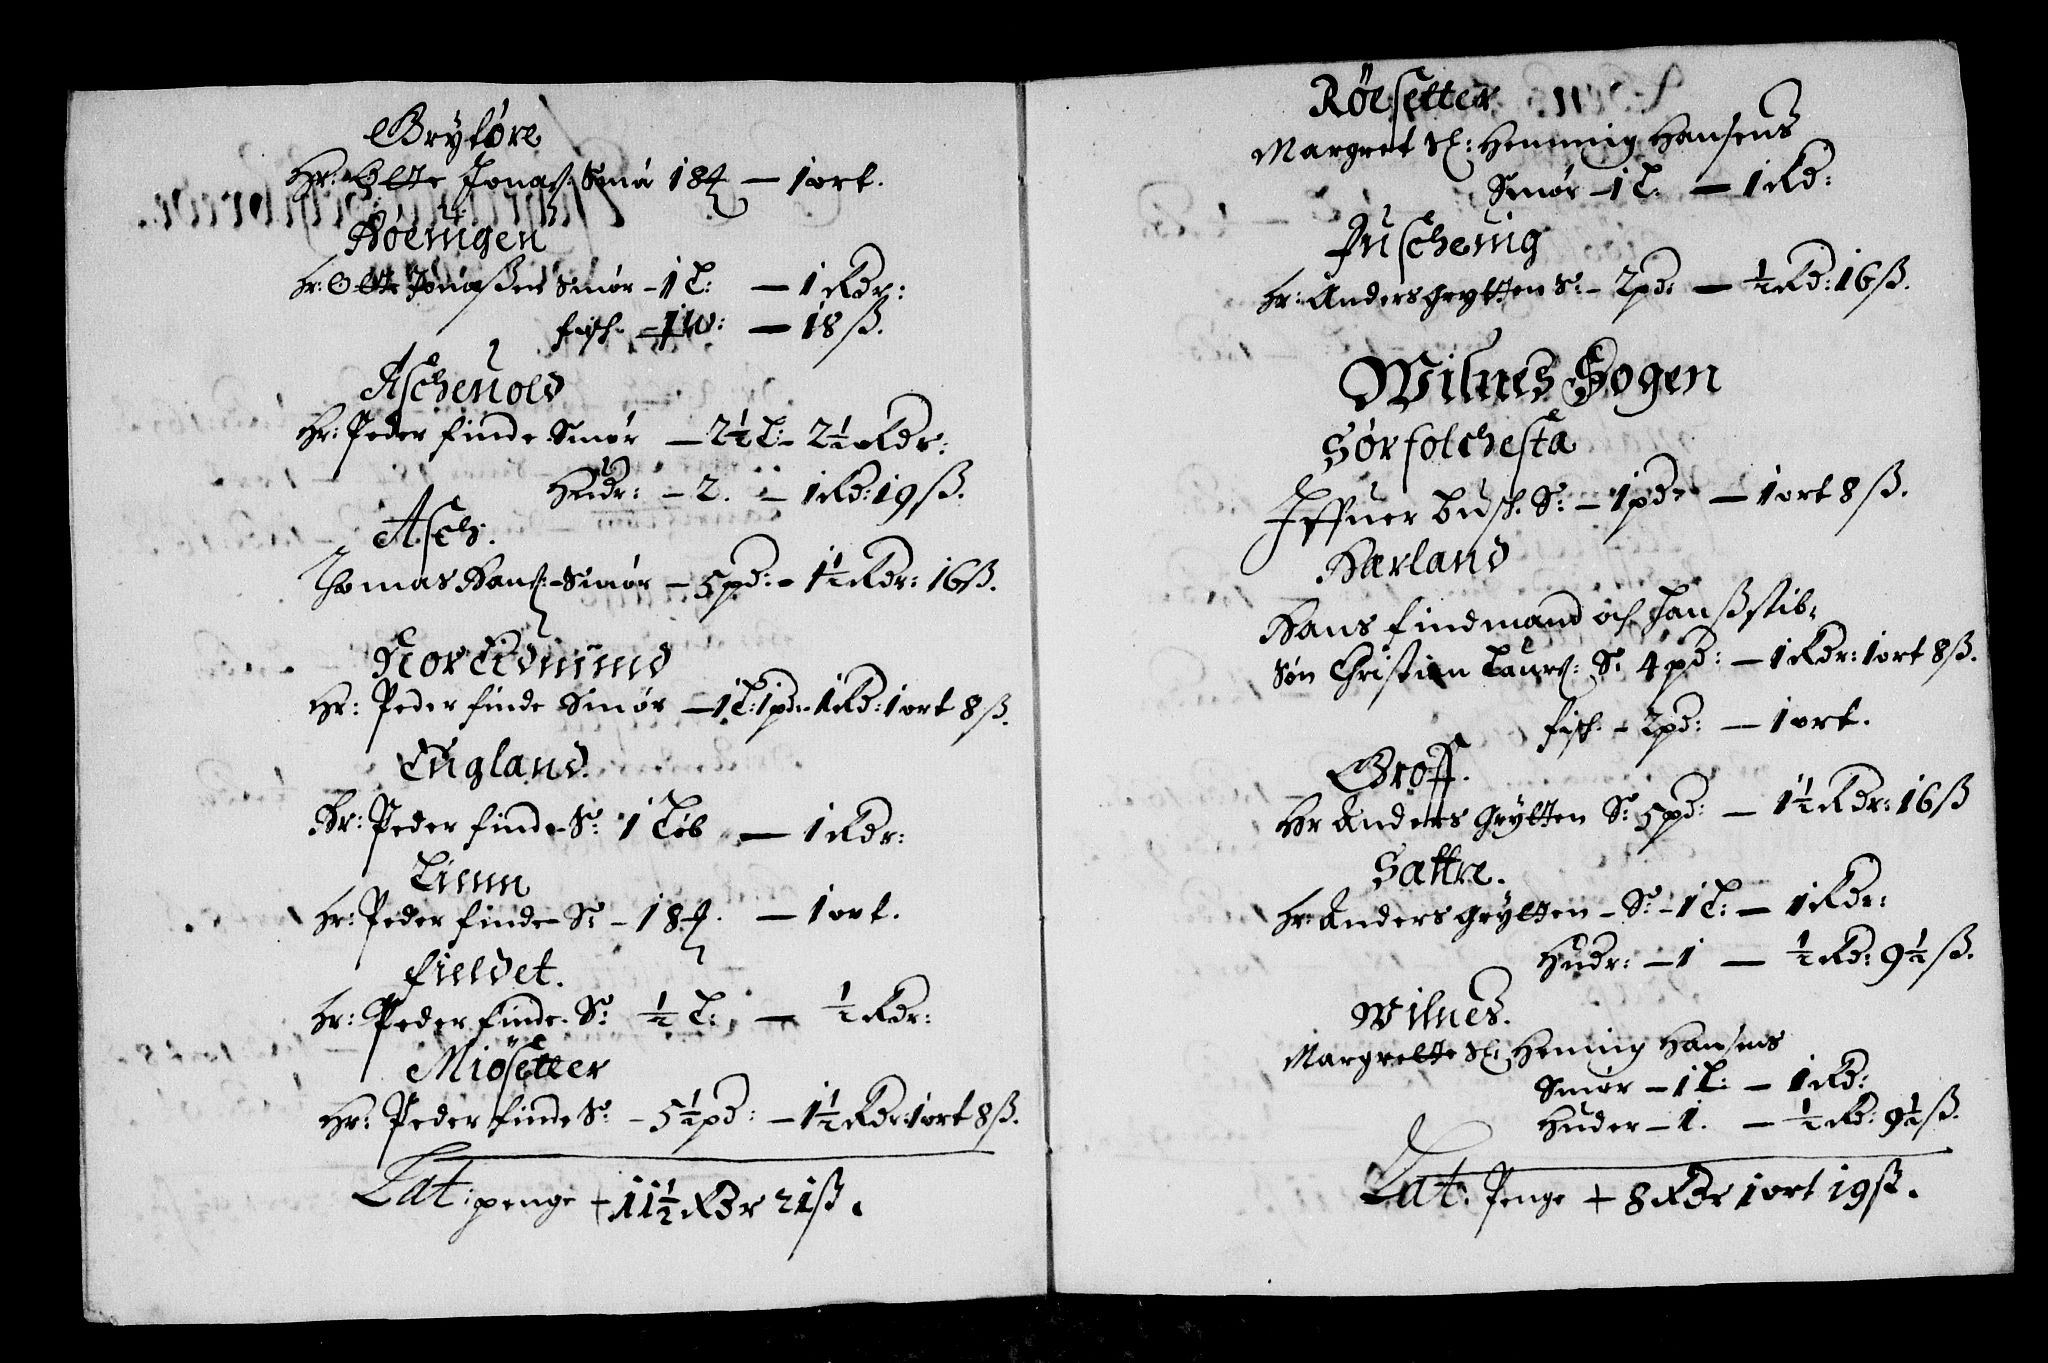 Gryføre
Hr: Olle Jonaß: Smør 18 ℔ — 1 ort.
Höeningen
Hr: Olle Jonaßen Smør – 1 L: — 1 Rdr:
fisch – 1 W: — 18 ß.
Aschenold
Hr: Peder finde Smør – 2½ L: – 2½ Rdr:
Hudr: – 2. – 1 Rd: 19 ß.
Asch.
Thomas Hanß: Smør – 5 pd: – 1½ Rdr: 16 ß.
Hr: Peder finde Smør – 1 L: 1 pd: – 1 Rd: 1 ort 8 ß.
England.
Hr: Peder finde S: 1 Løb — 1 Rdr:
Hr: Peder finde S: – 18 ℔. — 1 ort.
fieldet.
Hr: Peder finde S: ½ L: — ½ Rdr:
Miösetter
Hr: Peder finde S: – 5½ pd: – 1½ Rdr: 1 ort 8 ß.
Lat: penge + 11½ Rdr 21 ß.
Röesetter
Margret Sl: Hemming Hansens
Smør – 1 L: — 1 Rd:
Juscheuig
Hr: Anders Grytten S: – 2 pd: — ½ Rd: 16 ß.
Wilnes Sogen
Sørfolchesta
Iffuer busch S: – 1 pd: — 1 ort 8 ß.
Hærland
Hans findmand och Hanß stib:
søn Christien Laurß: S: 4 pd: – 1 Rdr: 1 ort 8 ß.
fisch – 2 pd: — 1 ort.
Groff.
Hr Anders Grytten S: 5 pd: – 1½ Rdr: 16 ß
Sættre.
Hr: Anders Grytten – S: – 1 L: — 1 Rdr:
Hudr: – 1 — ½ Rd: 9½ ß.
Wilnes.
Margrette Sl: Heming Hansens
Smør – 1 L: – 1 Rd:
Huder – 1. – ½ Rd: 9½ ß.
Lat: Penge + 8 Rdr 1 ort 19 ß.